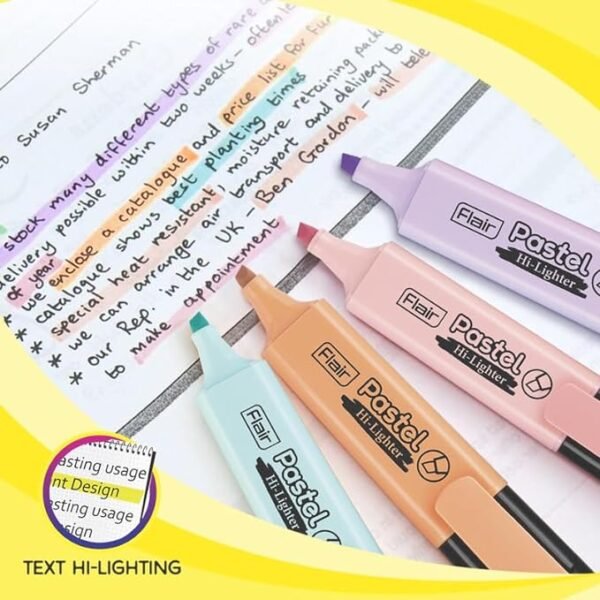 to Susan Sherman
stock many different types of rare
delivery possible within two weeks - often le
of year
* we enclose a catalogue and price list for fur
* catalogue shows best planting times
* special heat resistant, moisture retaining pack
* we can arrange air transport and delivery to
* our Rep. in the UK - Ben Gordon - will be
to make appointment
Flair Pastel
Hi-Lighter
Flair Pastel
Hi-Lighter
Flair Pastel
Hi-Lighter
Flair Pastel
Hi-Lighter
asting usage
nt Design
esting usage
sign
TEXT HI-LIGHTING